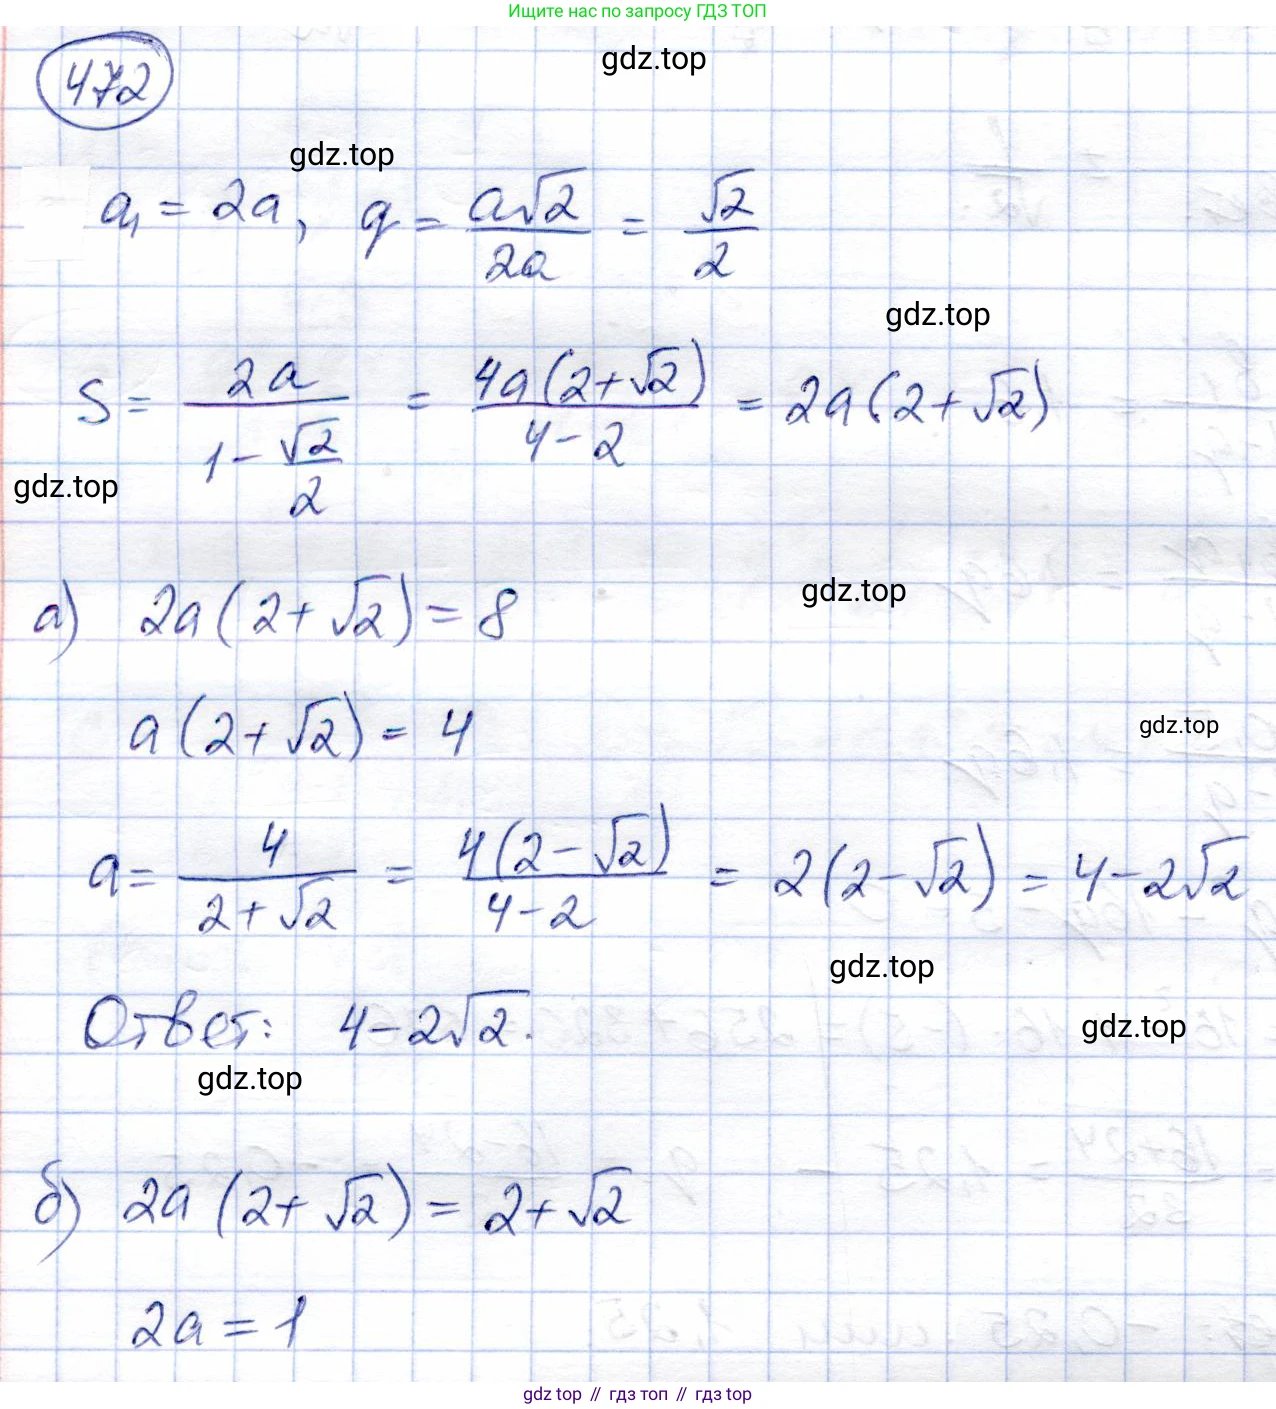 Ищите нас по запросу ГДЗ ТОП
gdz.top
472
gdz.top
a₁ = 2a, q = a√2/2a = √2/2
gdz.top
S = 2a/(1 - √2/2) = 4a(2+√2)/(4-2) = 2a(2+√2)
gdz.top
gdz.top
а) 2a(2+√2) = 8
a(2+√2) = 4
gdz.top
a = 4/(2+√2) = 4(2-√2)/(4-2) = 2(2-√2) = 4-2√2
gdz.top
Ответ: 4-2√2.
gdz.top
gdz.top
б) 2a(2+√2) = 2+√2
2a = 1
gdz top // гдз топ // гдз top